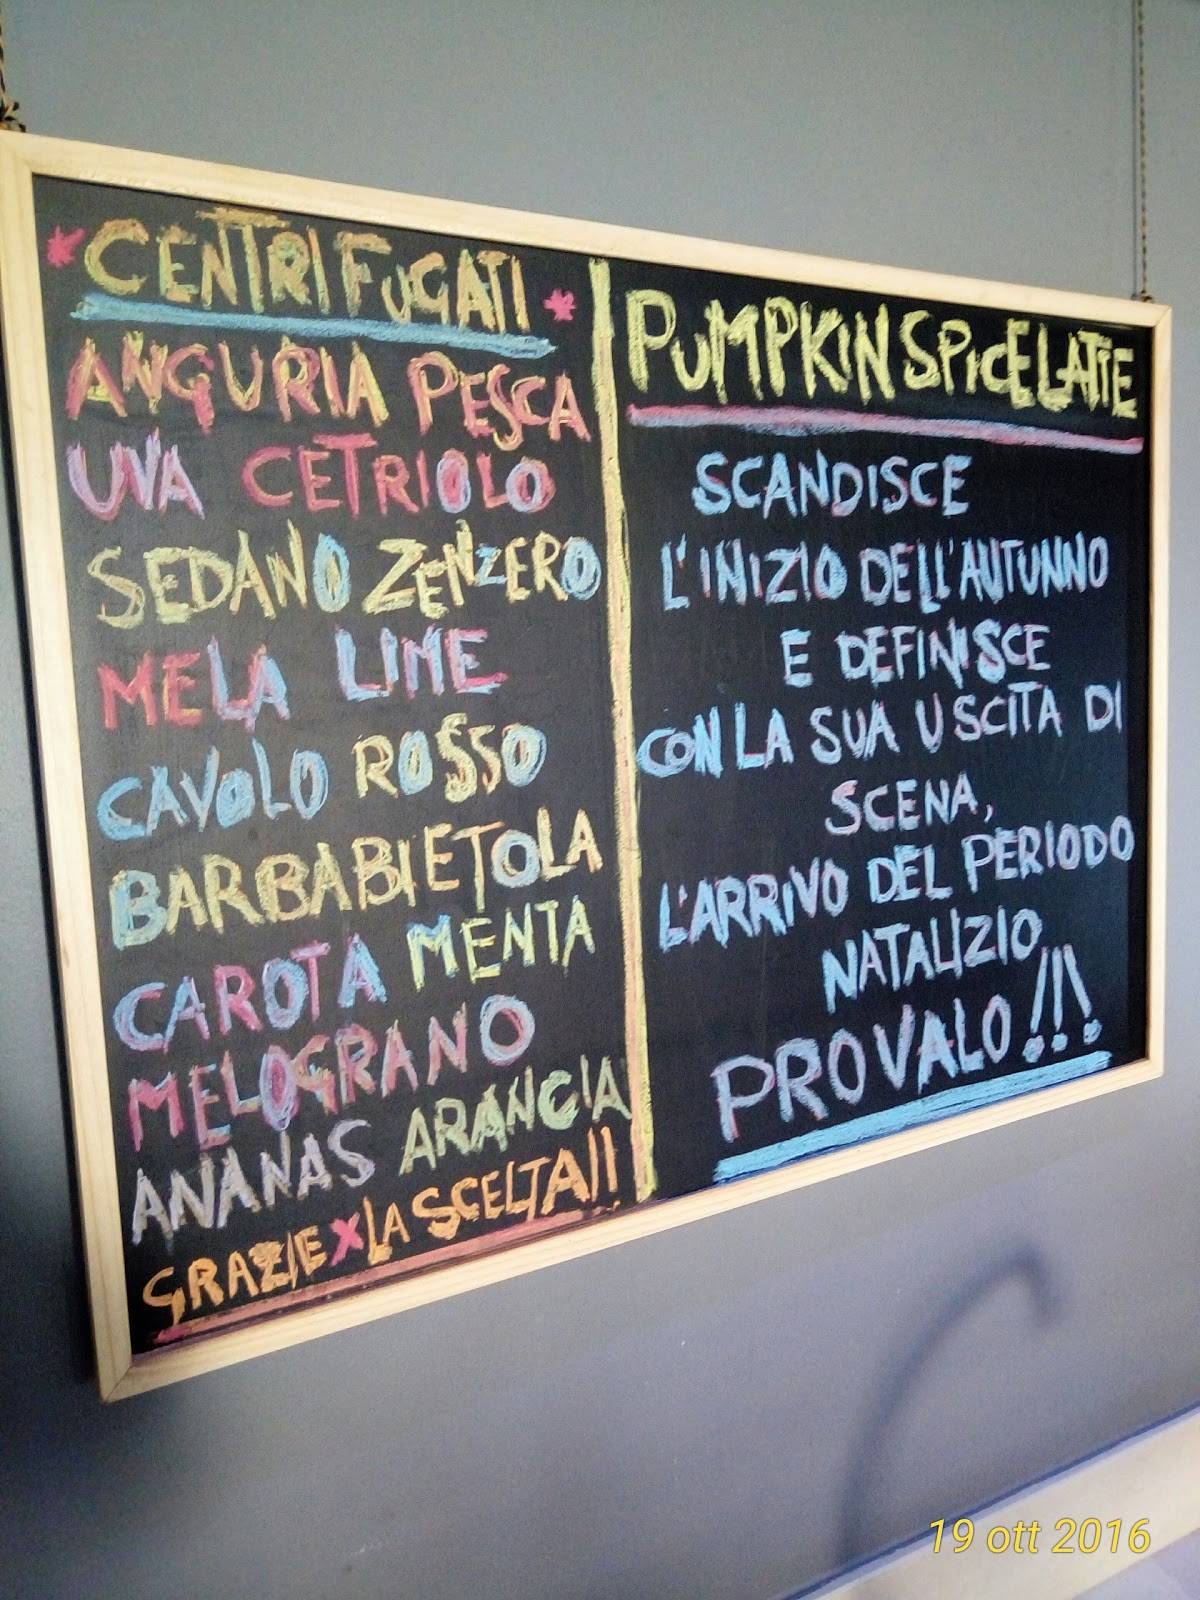 * CENTRIFUGATI *
ANGURIA PESCA
UVA CETRIOLO
SEDANO ZENZERO
MELA LIME
CAVOLO ROSSO
BARBABIETOLA
CAROTA MENTA
MELOGRANO
ANANAS ARANCIA
GRAZIE X LA SCELTA!!
PUMPKIN SPICE LATTE
SCANDISCE
L'INIZIO DELL'AUTUNNO
E DEFINISCE
CON LA SUA USCITA DI
SCENA,
L'ARRIVO DEL PERIODO
NATALIZIO
PROVALO!!!
19 ott 2016